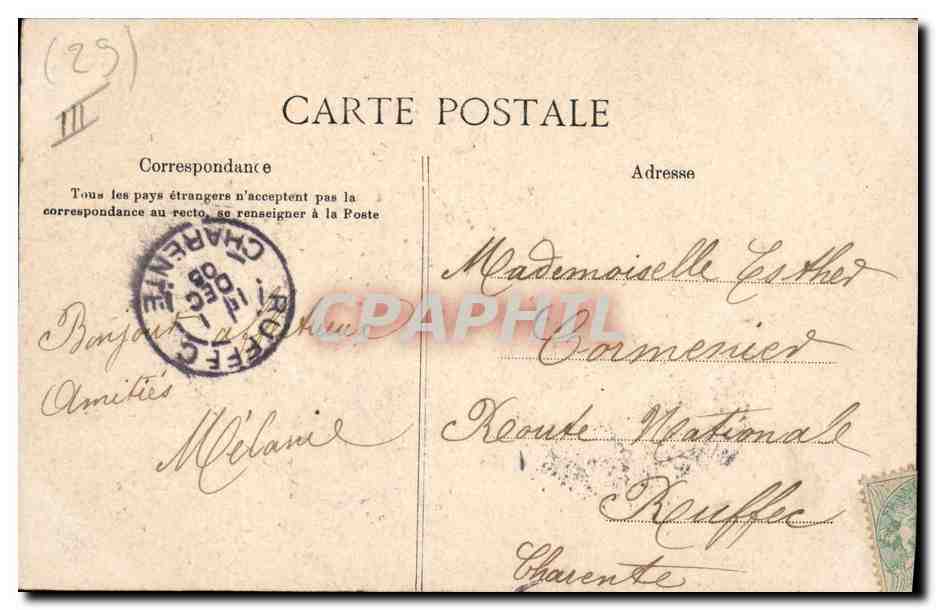 (29)
III
CARTE POSTALE
Correspondance
Tous les pays étrangers n'acceptent pas la
correspondance au recto, se renseigner à la Poste
Adresse
RUFFEC
CHARENTE
DEC
05
CPAPHIL
Bonjour affectueux
Amitiés
Mélanie
Mademoiselle Esther
Cormenier
Route Nationale
Ruffec
Charente